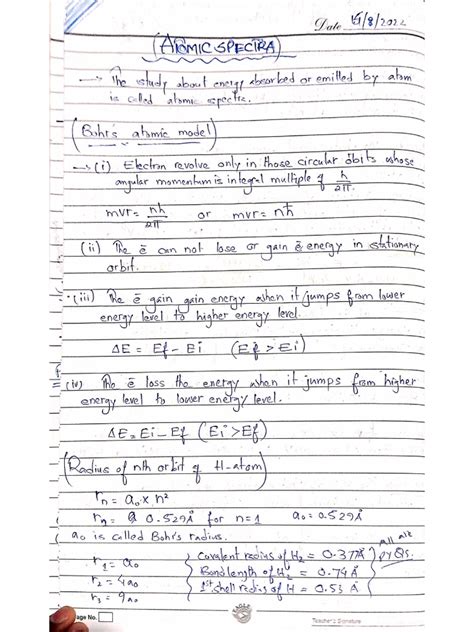 Date 15/8/2022
(ATOMIC SPECTRA)
→ The study about energy absorbed or emitted by atom
is called atomic spectra.
(Bohr's atomic model)
→ (i) Electron revolve only in those circular obits whose
angular momentum is integral multiple of h/2π.
mvr = nh/2π or mvr = nħ
(ii) The ē can not lose or gain ē energy in stationary
orbit.
(iii) The ē gain gain energy when it jumps from lower
energy level to higher energy level.
ΔE = Ef - Ei (Ef > Ei)
(iv) The ē loss the energy when it jumps from higher
energy level to lower energy level.
ΔE = Ei - Ef (Ei > Ef)
(Radius of nth orbit of H-atom)
rn = a₀ x n²
0.529Å for n=1 a₀ = 0.529Å
a₀ is called Bohr's radius.
r₁ = a₀
r₂ = 4a₀
r₃ = 9a₀
Covalent radius of H₂ = 0.37Å
Bond length of H₂ = 0.74Å
1st shell radius of H = 0.53 Å
All are
PYQs.
age No.
Teacher's Signature